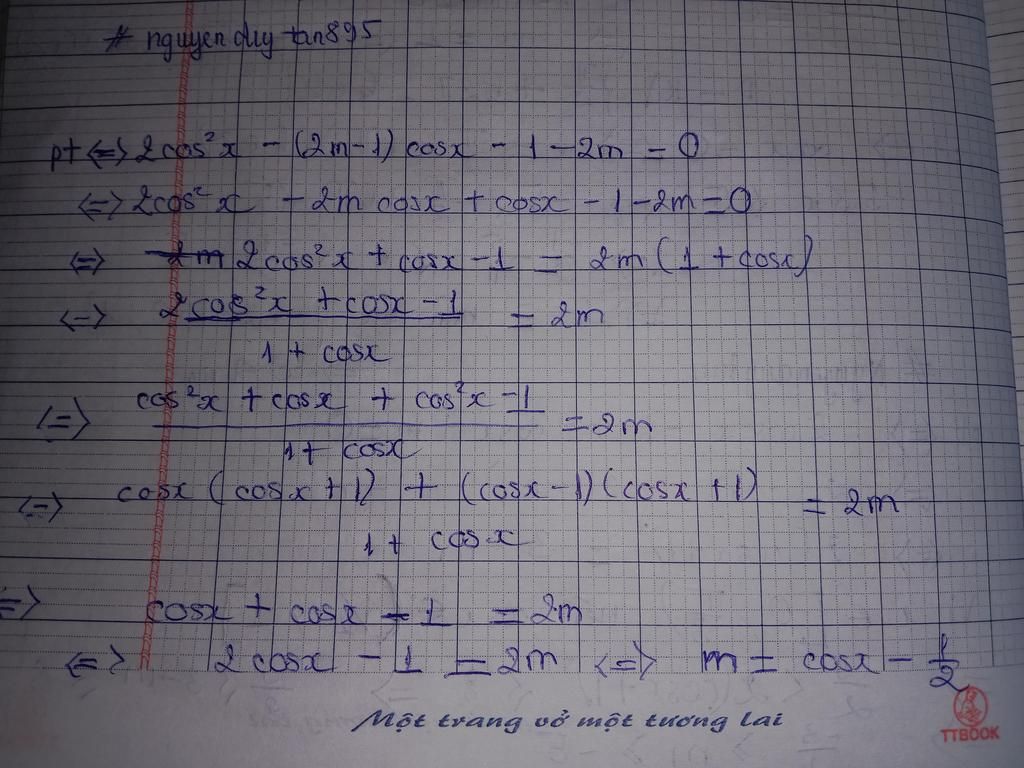 # nguyen duy tan895
pt <=> 2cos²x - (2m-1) cosx - 1 - 2m = 0
<=> 2cos²x - 2m cosx + cosx - 1 - 2m = 0
<=> 2m 2cos²x + cosx - 1 = 2m (1 + cosx)
<=> 2cos²x + cosx - 1 = 2m
1 + cosx
<=> cos²x + cosx + cos²x - 1 = 2m
1 + cosx
<=> cosx (cosx + 1) + (cosx - 1)(cosx + 1) = 2m
1 + cosx
=> cosx + cosx - 1 = 2m
<=> 2cosx - 1 = 2m <=> m = cosx - 1/2
Một trang vở một tương lai
TTBOOK